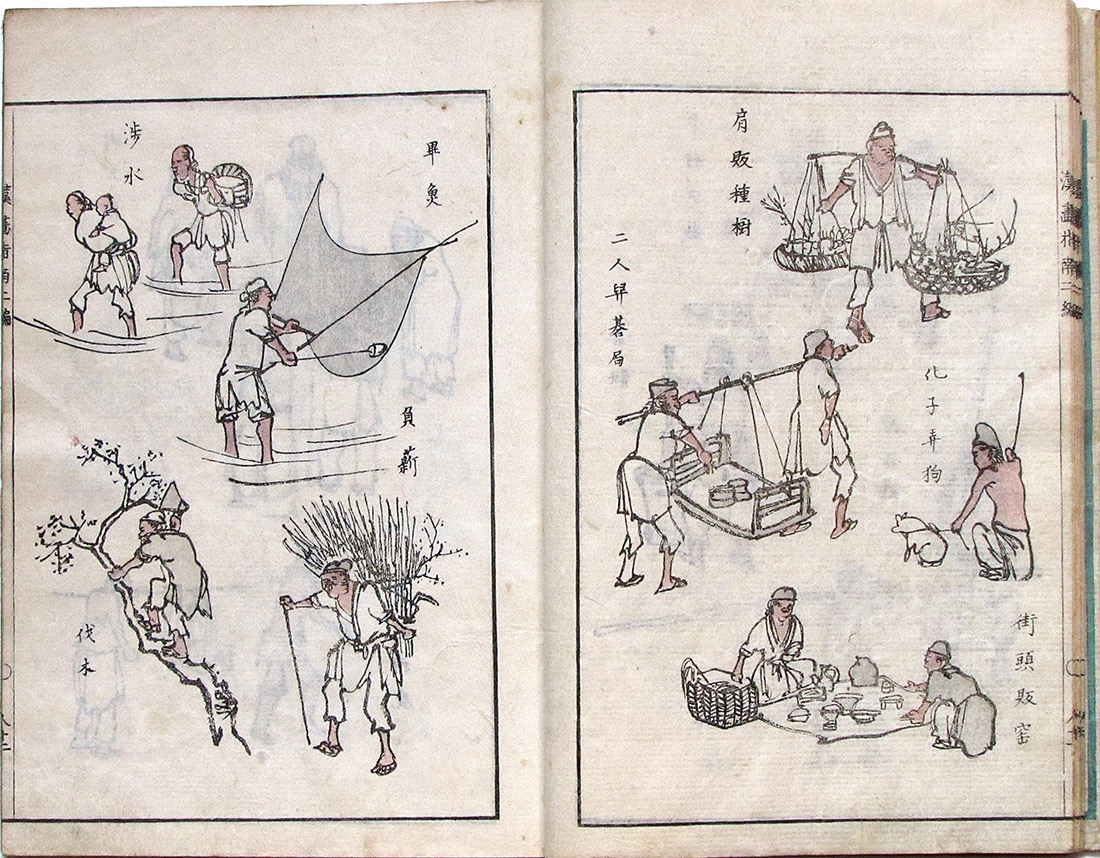 漢畫指南二編
肩販種樹
二人舁碁局
化子弄狗
街頭販窑
畢魚
涉水
負薪
伐木
漢畫指南二編